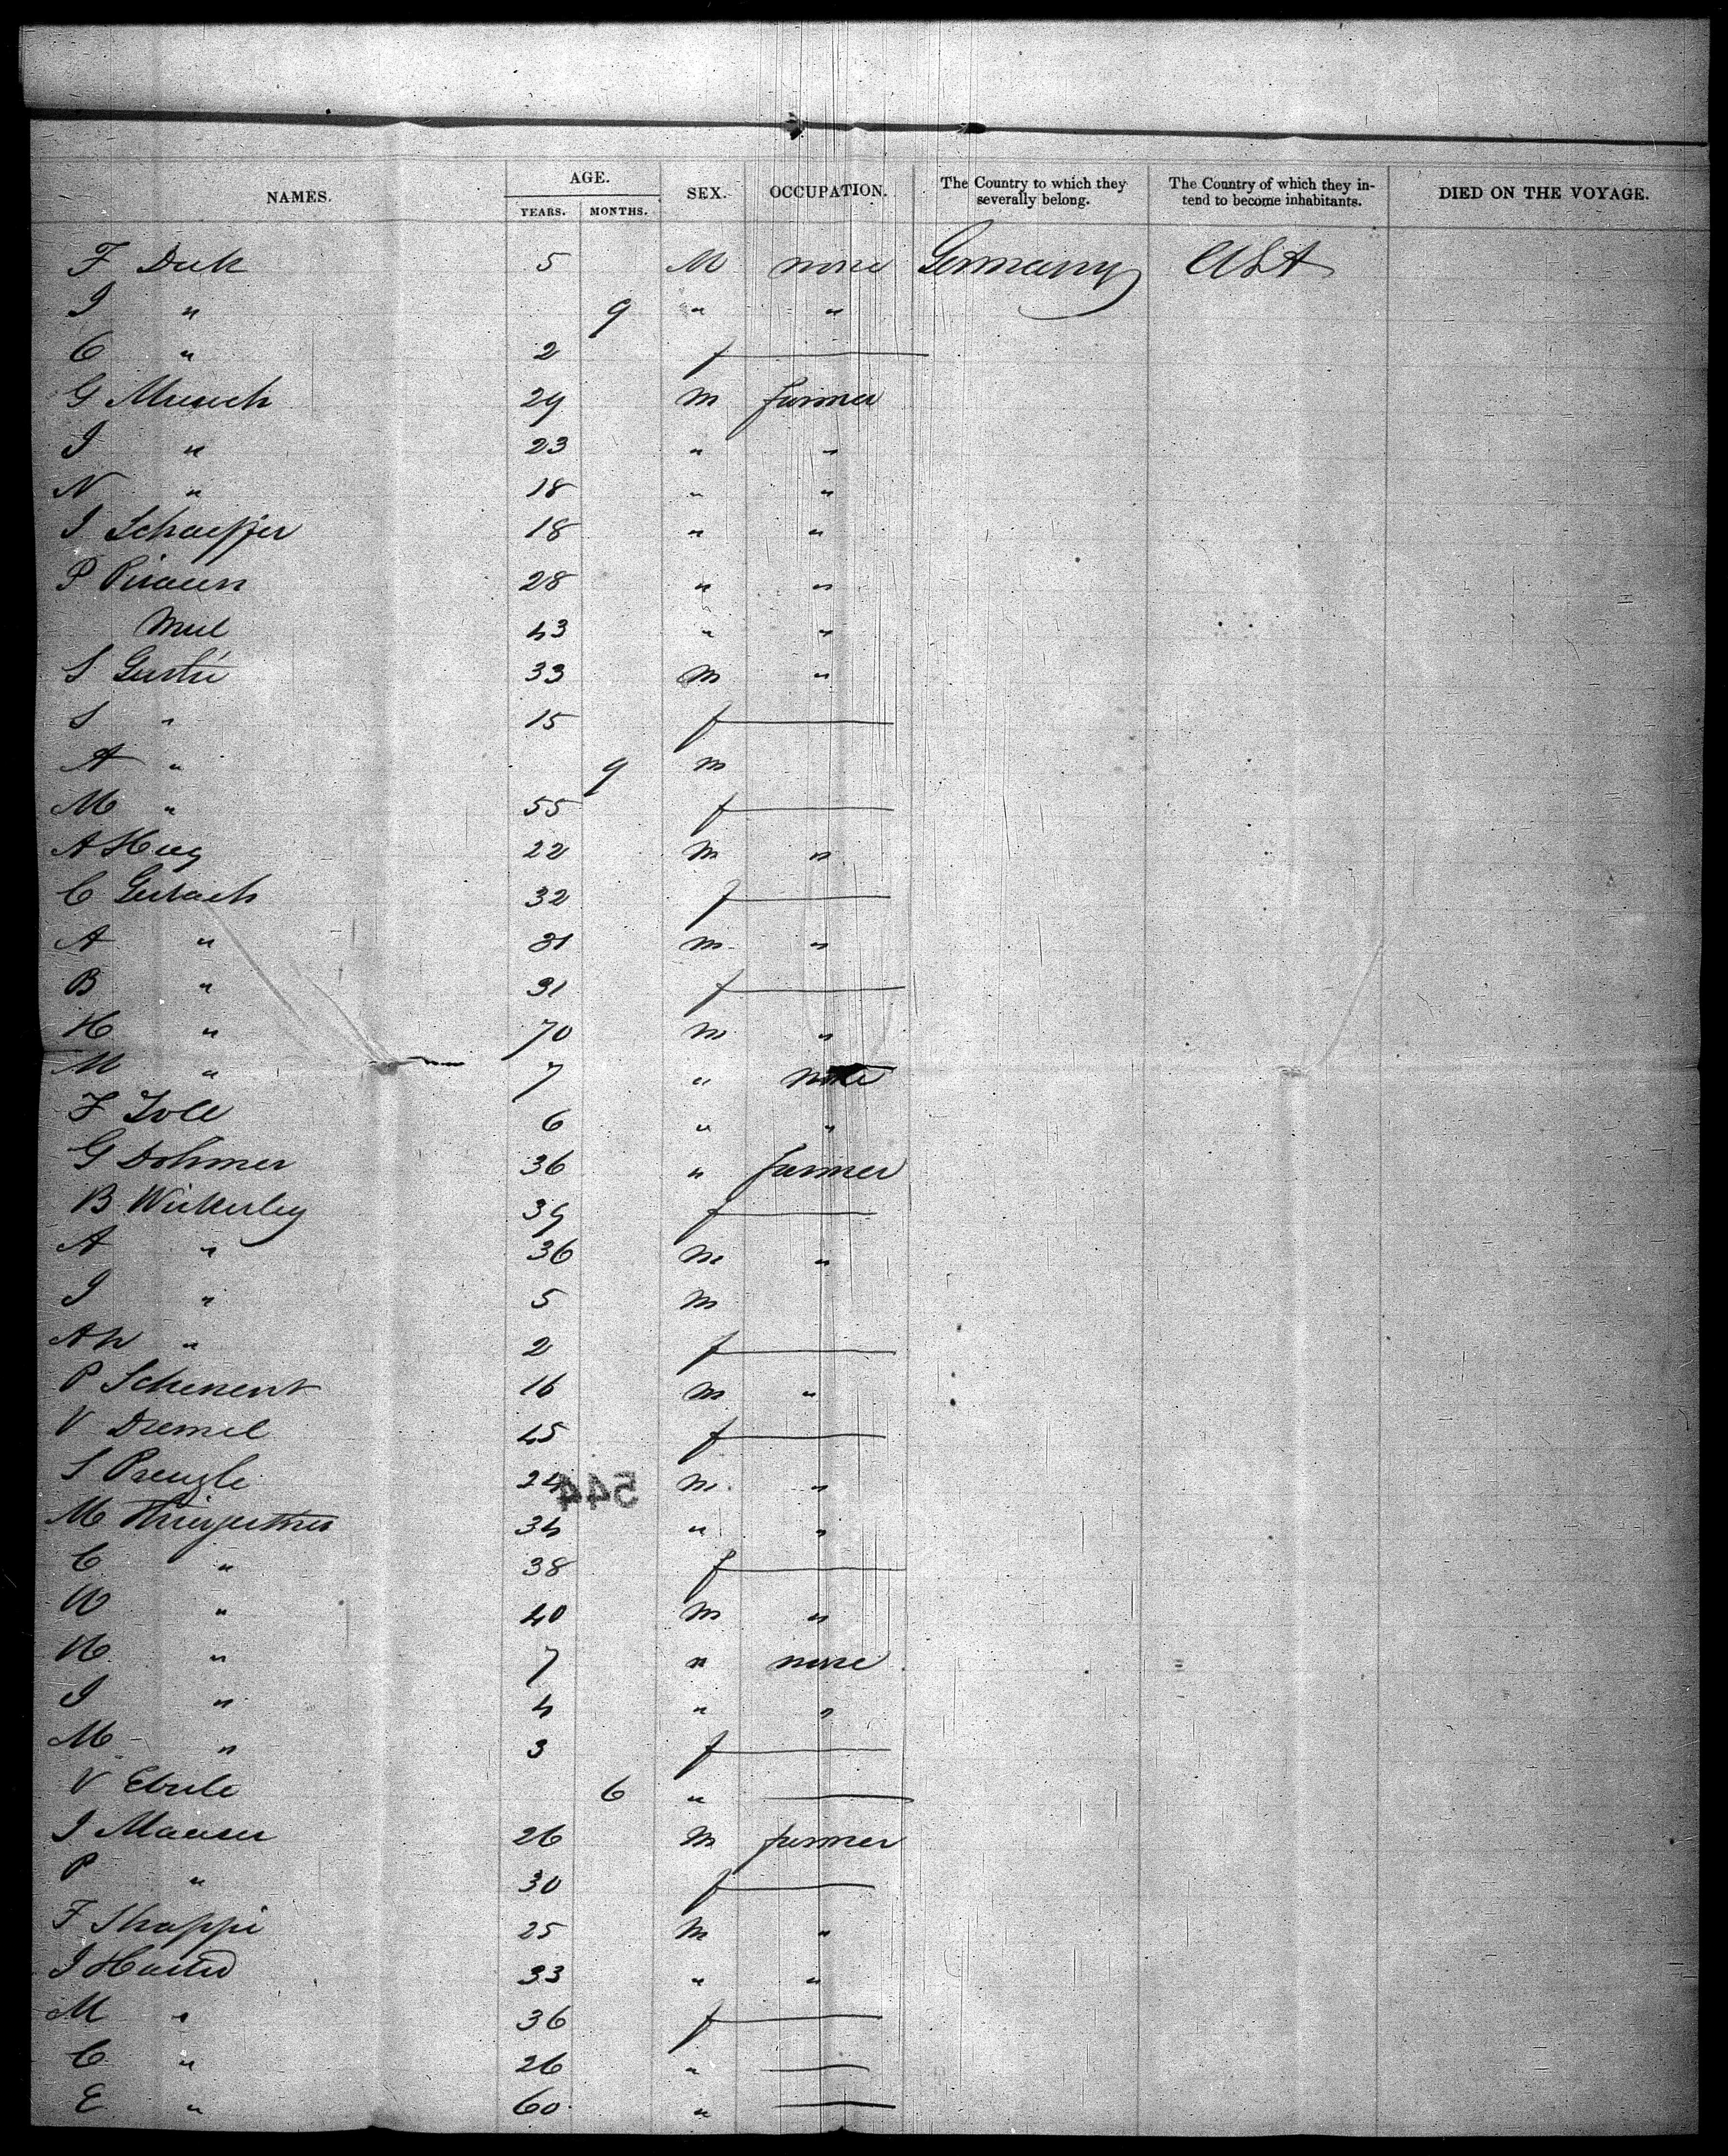 NAMES. AGE. YEARS. MONTHS. SEX. OCCUPATION. The Country to which they severally belong. The Country of which they intend to become inhabitants. DIED ON THE VOYAGE.
F Duk 5 M none Germany USA
J " 9 " "
C " 2 f
G Muench 29 m farmer
J " 23 " "
N " 18 " "
J Schaeffer 18 " "
P Piraun 28 " "
Mul 43 " "
S 33 m "
S " 15 f
A " 9 m
M " 55 f
A Hug 22 m "
C Gerlach 32 f
A " 31 m "
B " 31 f
H " 70 m "
M " 7 " none
F Zoll 6 " "
G Dohmer 36 " farmer
B Wickerley 39 f
A " 36 m "
J " 5 m
AW " 2 f
P 16 m "
V Dremel 45 f
S Prengle 24 m "
544
M 34 " "
C " 38 f
W " 40 m "
H " 7 " none
J " 4 " "
M " 3 f
V Eberle 6 "
J Mauser 26 m farmer
P " 30 f
F Shappi 25 m "
J 33 " "
M " 36 f
C " 26 "
E " 60 "